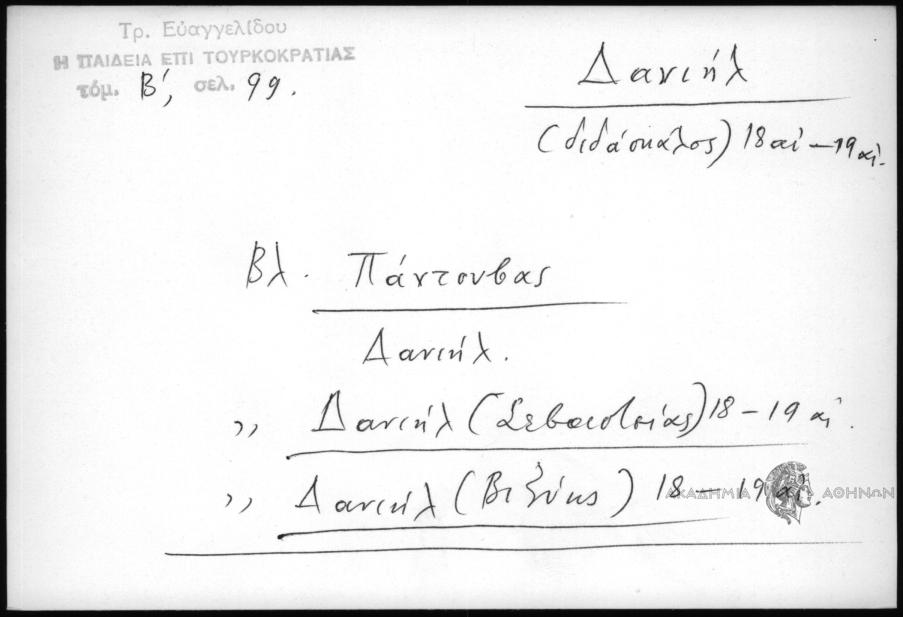 Τρ. Εὐαγγελίδου
Η ΠΑΙΔΕΙΑ ΕΠΙ ΤΟΥΡΚΟΚΡΑΤΙΑΣ
τόμ. Β΄, σελ. 99.
Δανιήλ
(διδάσκαλος) 18 αἰ – 19 αἰ.
Βλ. Πάντουβας
Δανιήλ.
,, Δανιήλ (Σεβαστείας) 18 – 19 αἰ.
,, Δανιήλ (Βιζύης) 18 – 19 αἰ.
ΑΚΑΔΗΜΙΑ ΑΘΗΝΩΝ